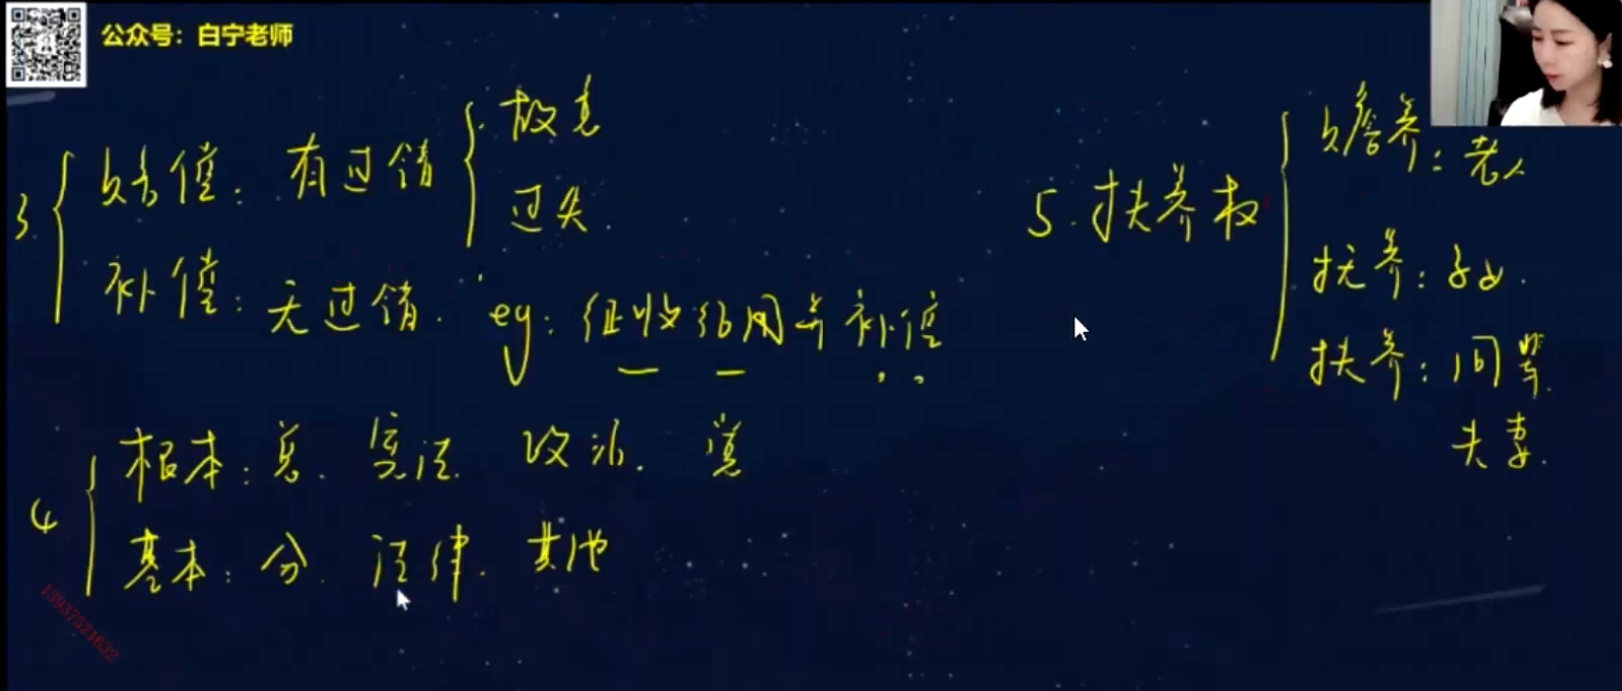 公众号：白宁老师
3. 赔偿：有过错 故意
过失.
补偿：无过错. eg：征收征用并补偿
4 根本：总. 宪法. 政治. 党
基本：分. 法律. 其他
5. 扶养权 赡养：老人
抚养：子女.
扶养：同辈.
夫妻.
13937521632